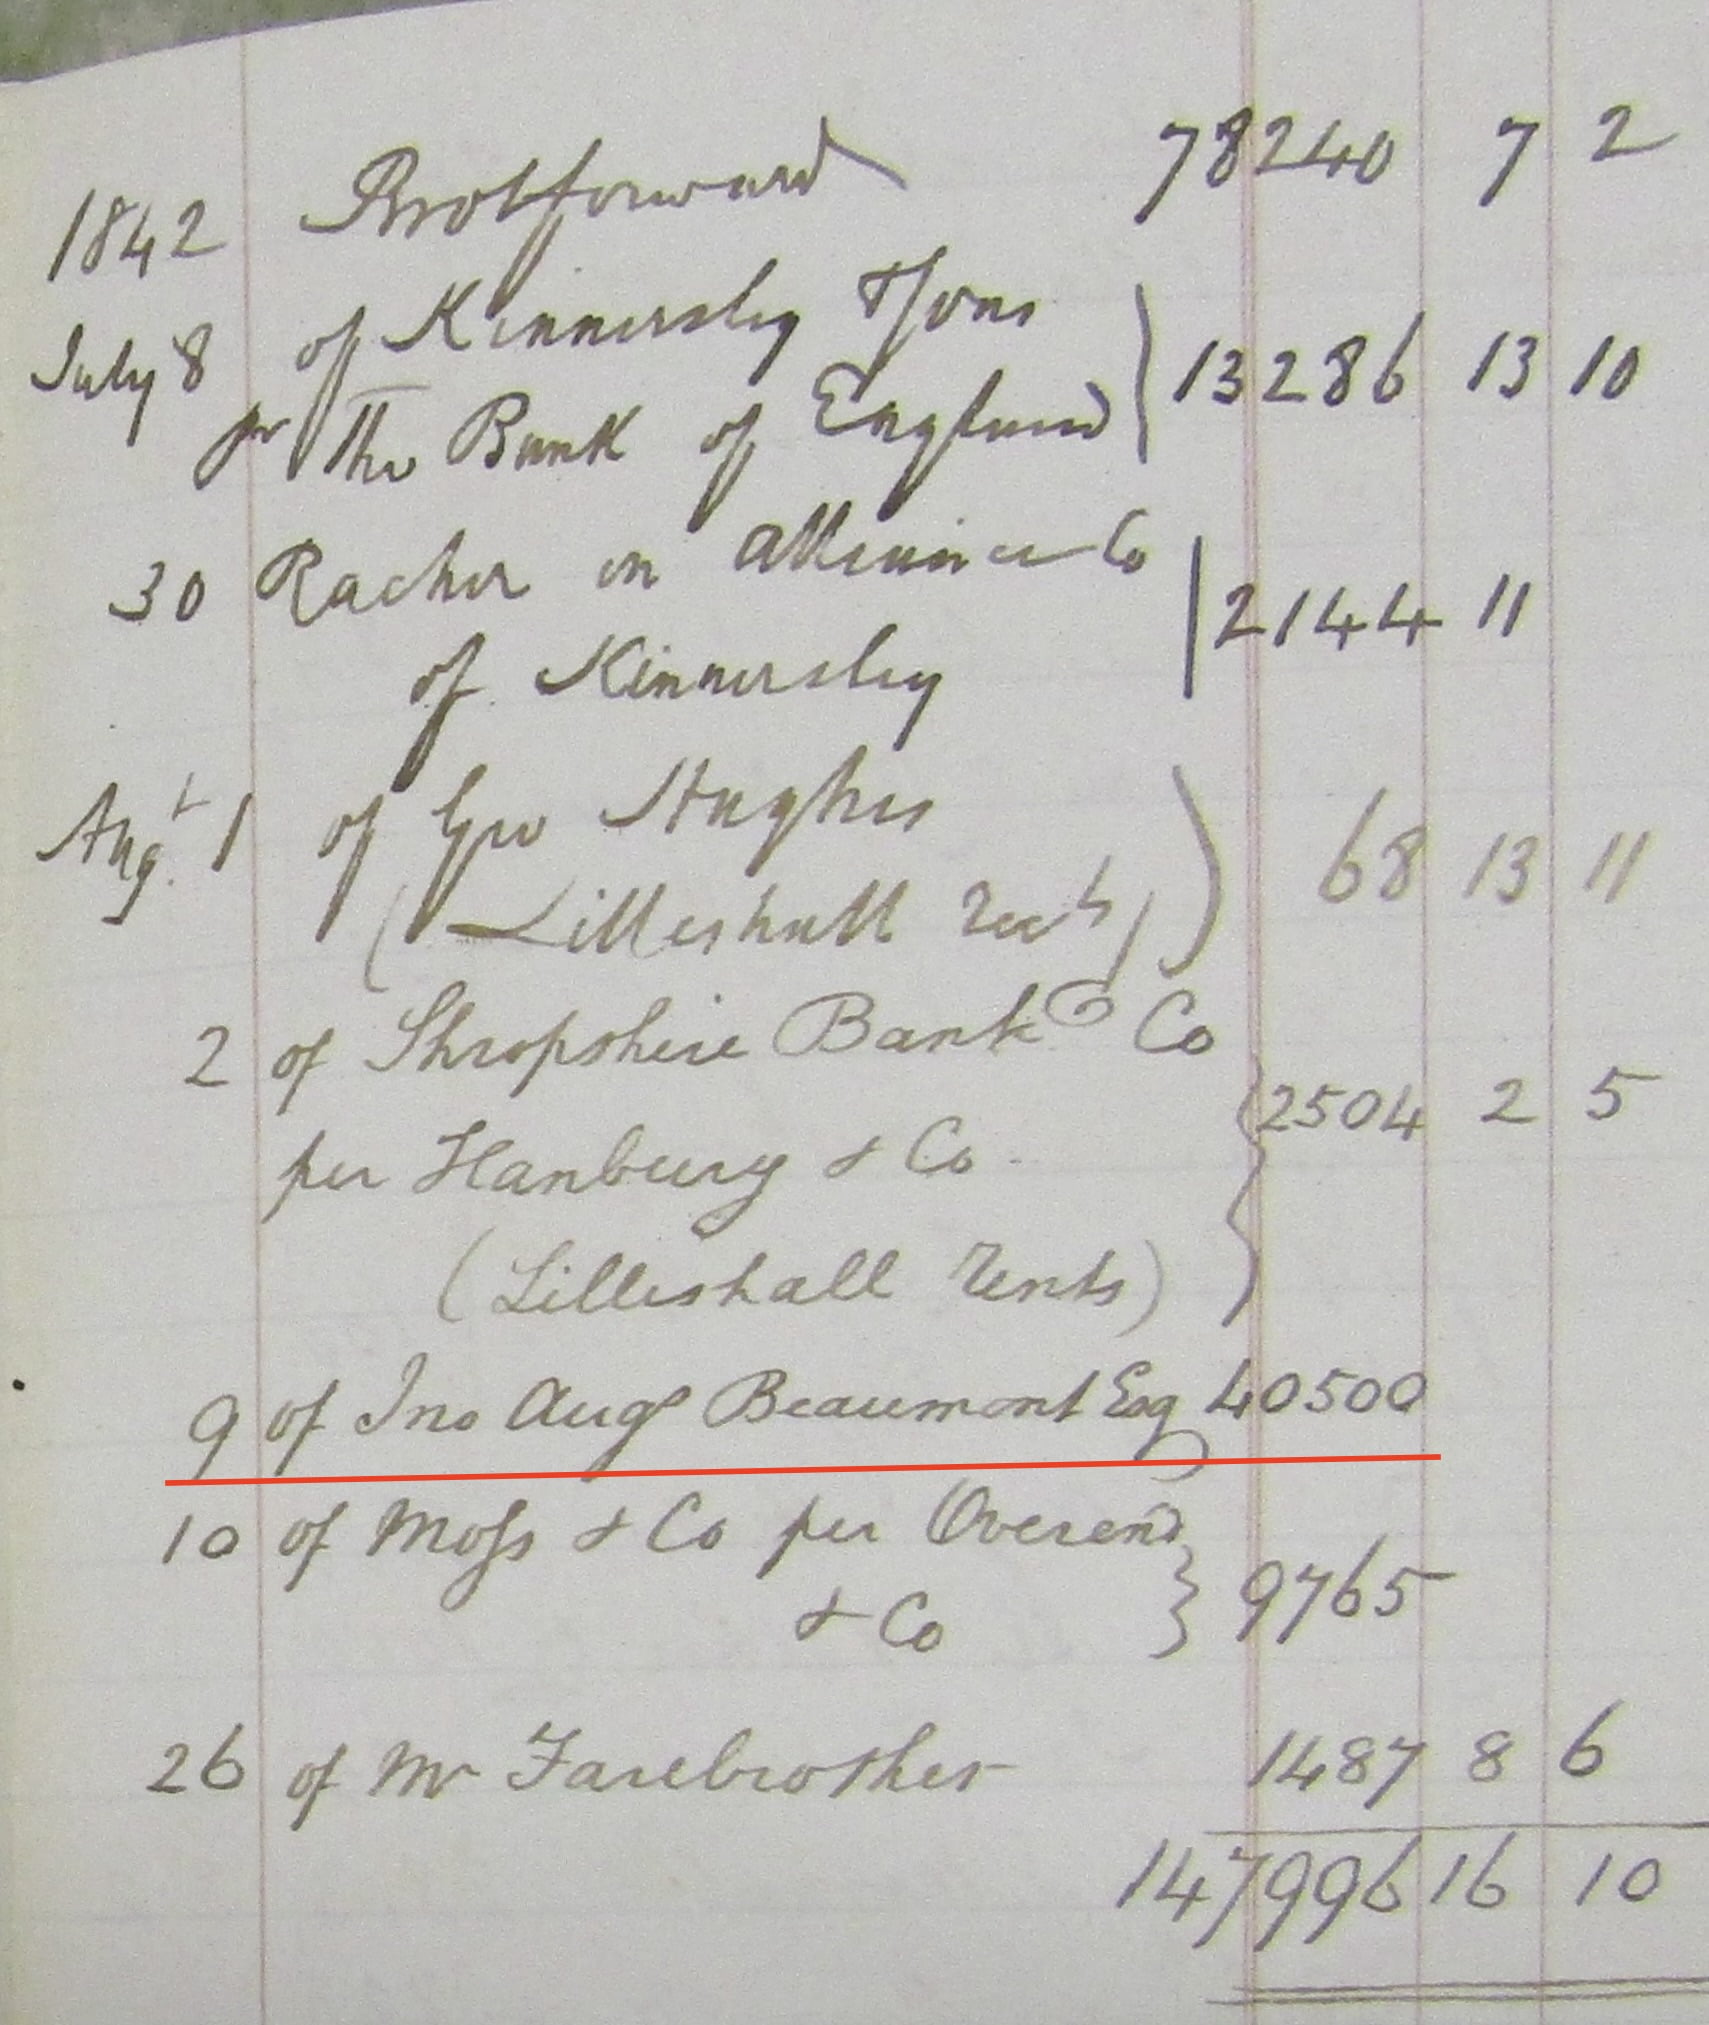 Brotforward 78240 7 2
1842
July 8 of Kinnersley & Sons
pr The Bank of England } 13286 13 10
30 Racher on Alliance Co
of Kinnersley | 2144 11
Augt. 1 of Geo Hughes
(Lilleshall Rects) ) 68 13 11
2 of Shropshire Bankg Co
per Hanbury & Co } 2504 2 5
(Lilleshall Rents)
9 of Jno Augs Beaumont Esq 40500
10 of Moss & Co per Overend
& Co } 9765
26 of Mr Farebrother 1487 8 6
147996 16 10